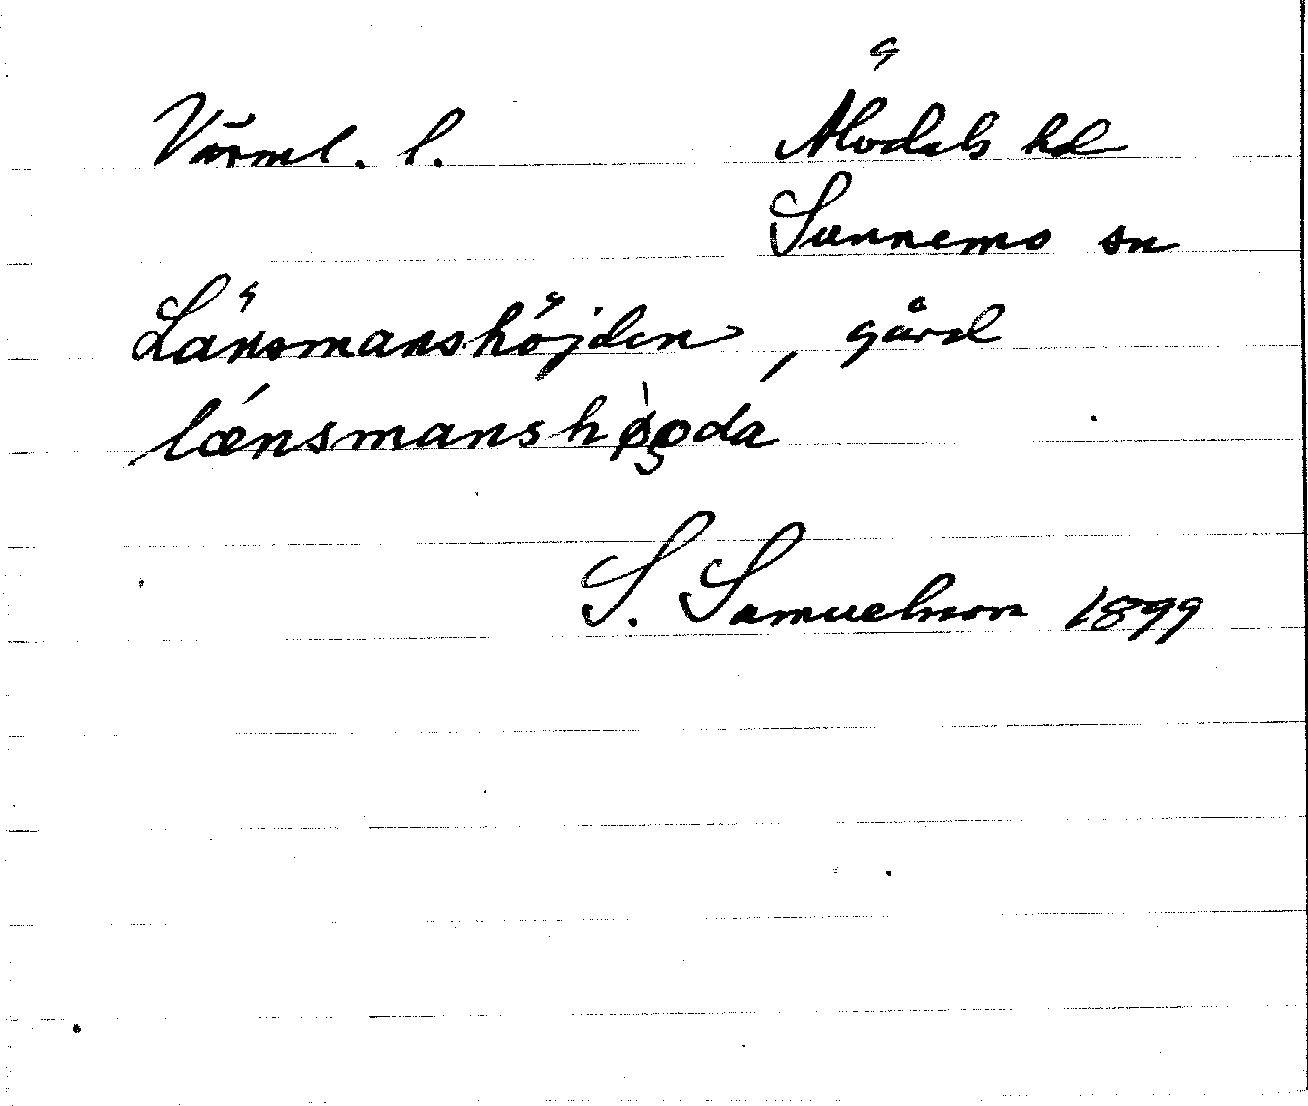 Värml. l. Älvdals hd
Sunnemo sn
Länsmanshöjden, gård
S. Samuelsson 1899